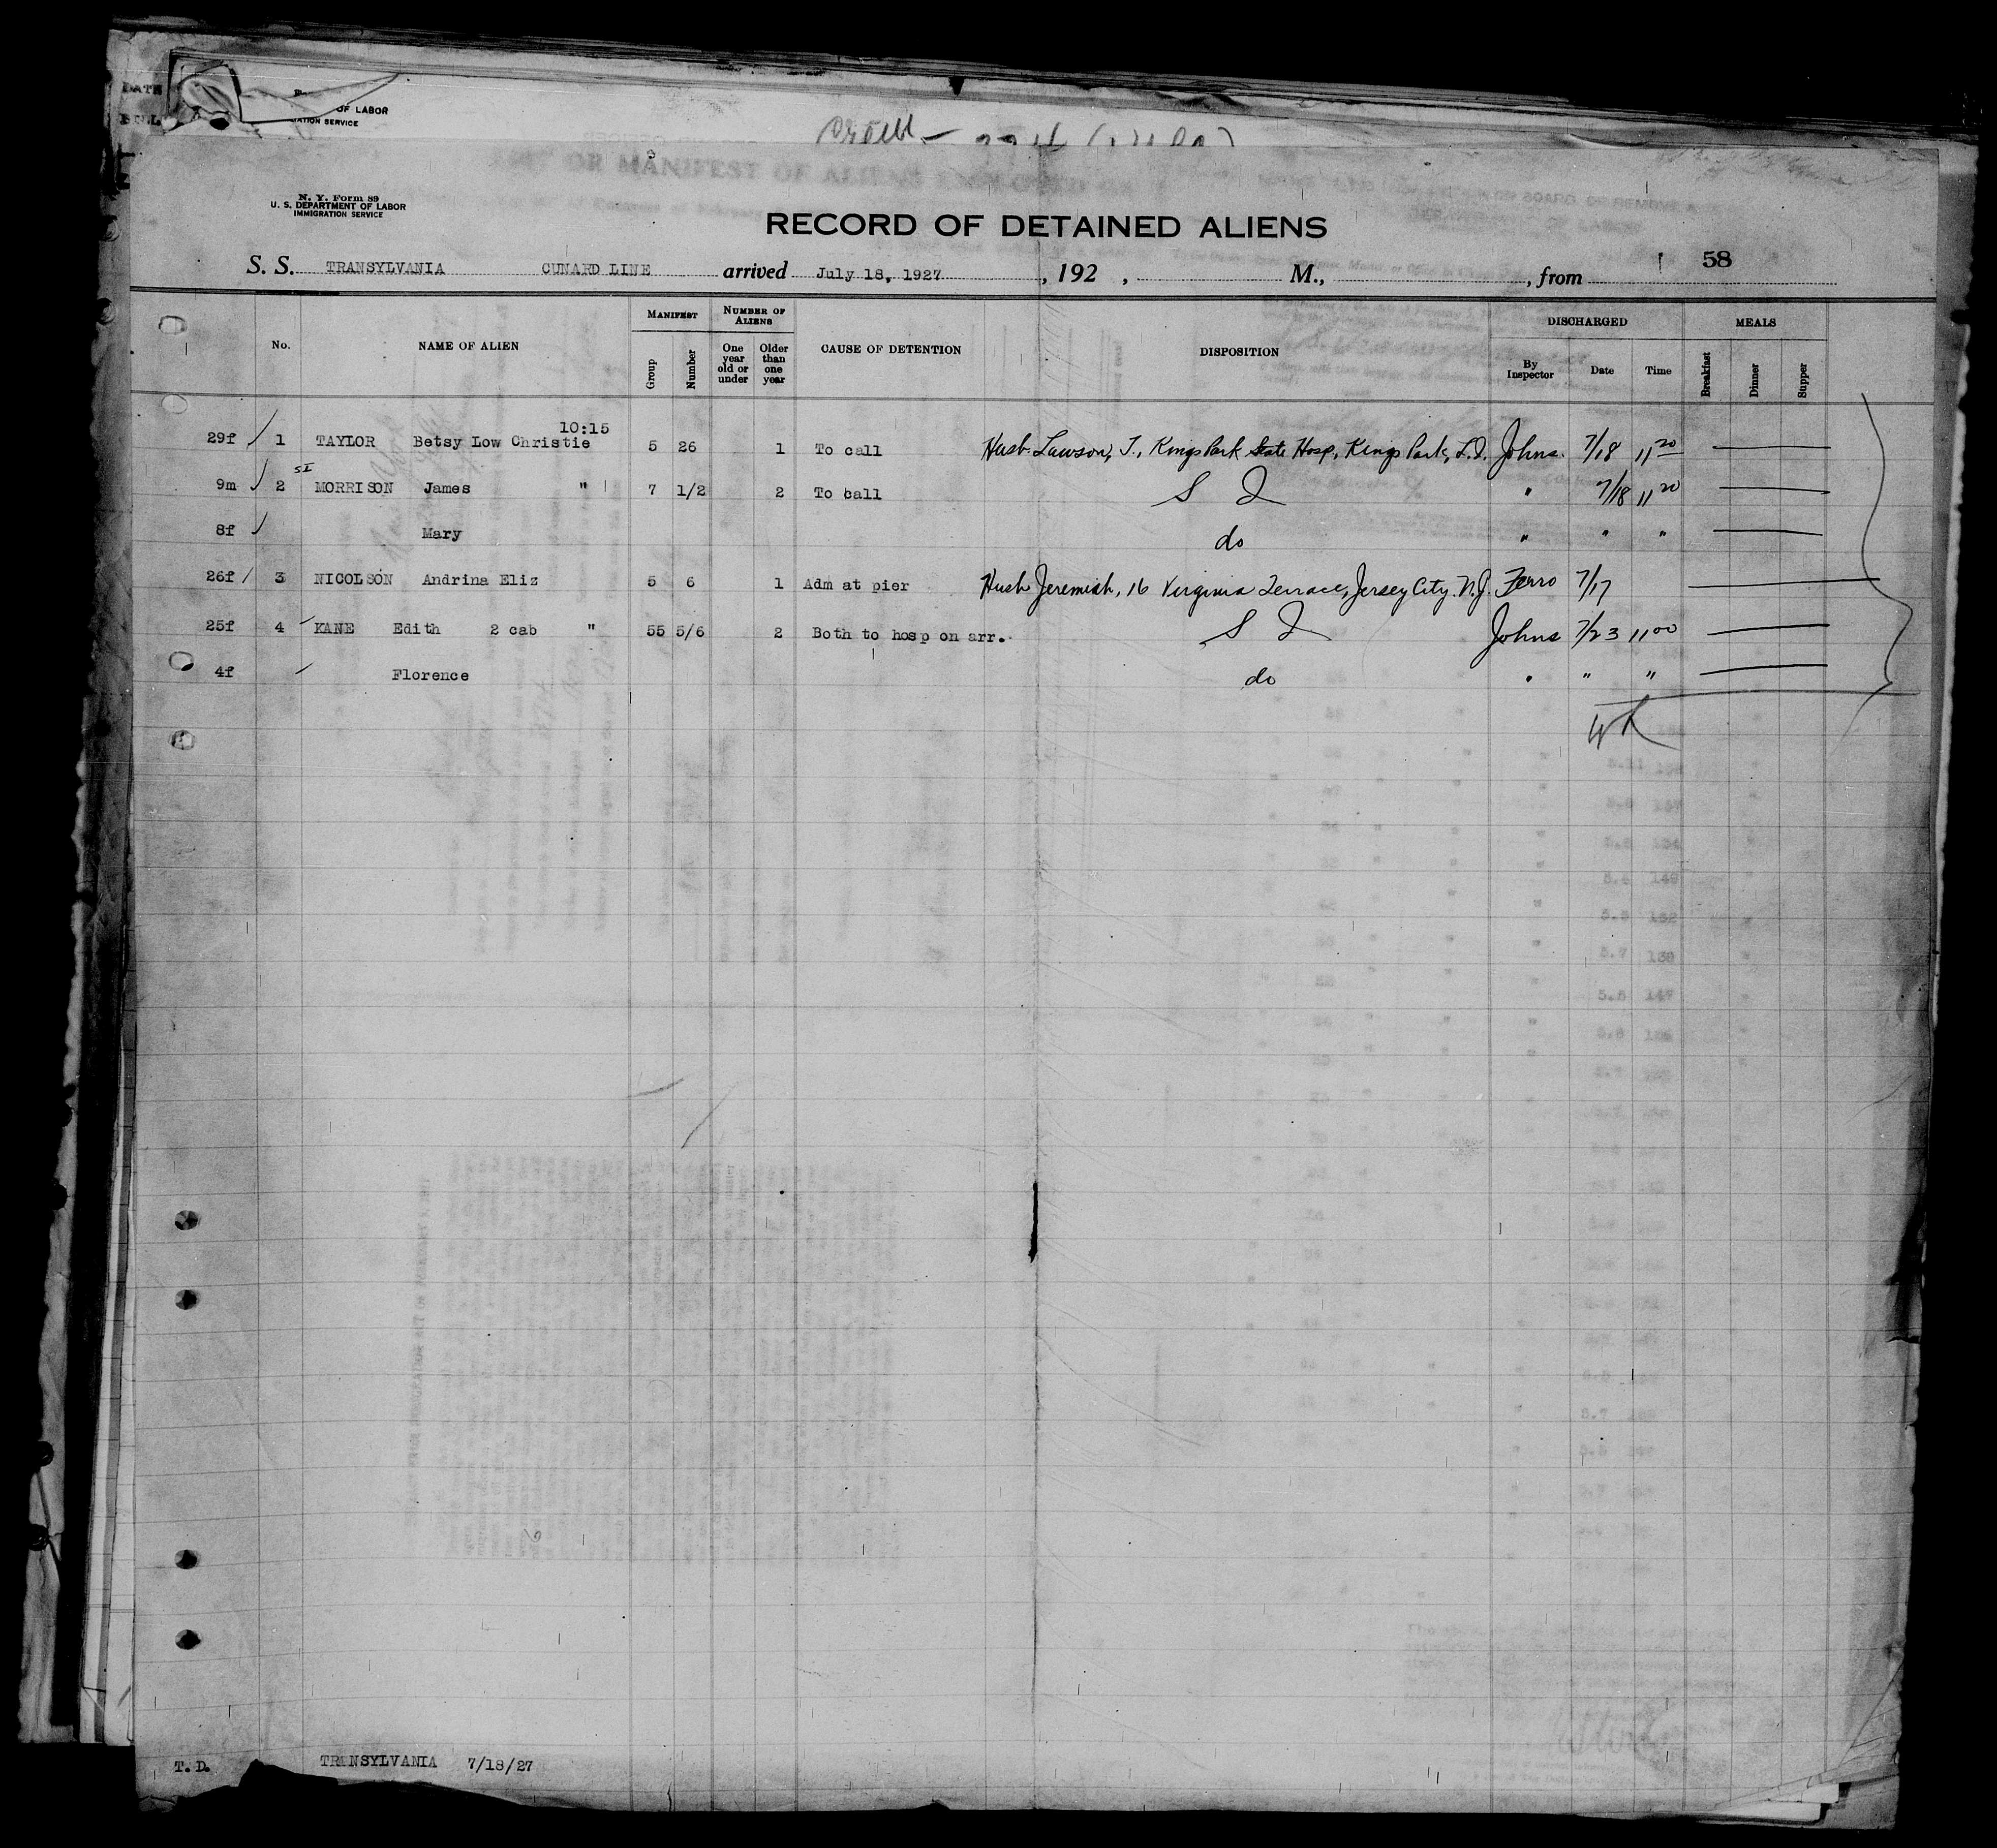 DATE
OF LABOR
IATION SERVICE
Crew - 224
N. Y. Form 89
U. S. DEPARTMENT OF LABOR
IMMIGRATION SERVICE
RECORD OF DETAINED ALIENS
58
S. S. TRANSYLVANIA CUNARD LINE arrived July 18, 1927, 192 , M., , from
No. NAME OF ALIEN MANIFEST Group Number NUMBER OF ALIENS One year old or under Older than one year CAUSE OF DETENTION DISPOSITION DISCHARGED By Inspector Date Time MEALS Breakfast Dinner Supper
10:15
29f 1 TAYLOR Betsy Low Christie 5 26 1 To call Husb Lawson, T., Kings Park State Hosp, Kings Park, L.I. Johns. 7/18 11 20
SI
9m 2 MORRISON James " 7 1/2 2 To call S I " 7/18 11 20
8f Mary do " " "
26f 3 NICOLSON Andrina Eliz 5 6 1 Adm at pier Husb Jeremiah, 16 Virginia Terrace, Jersey City. N.J. Ferro 7/17
25f 4 KANE Edith 2 cab " 55 5/6 2 Both to hosp on arr. S I Johns 7/23 11 00
4f Florence do " " "
WK
T. D. TRANSYLVANIA 7/18/27